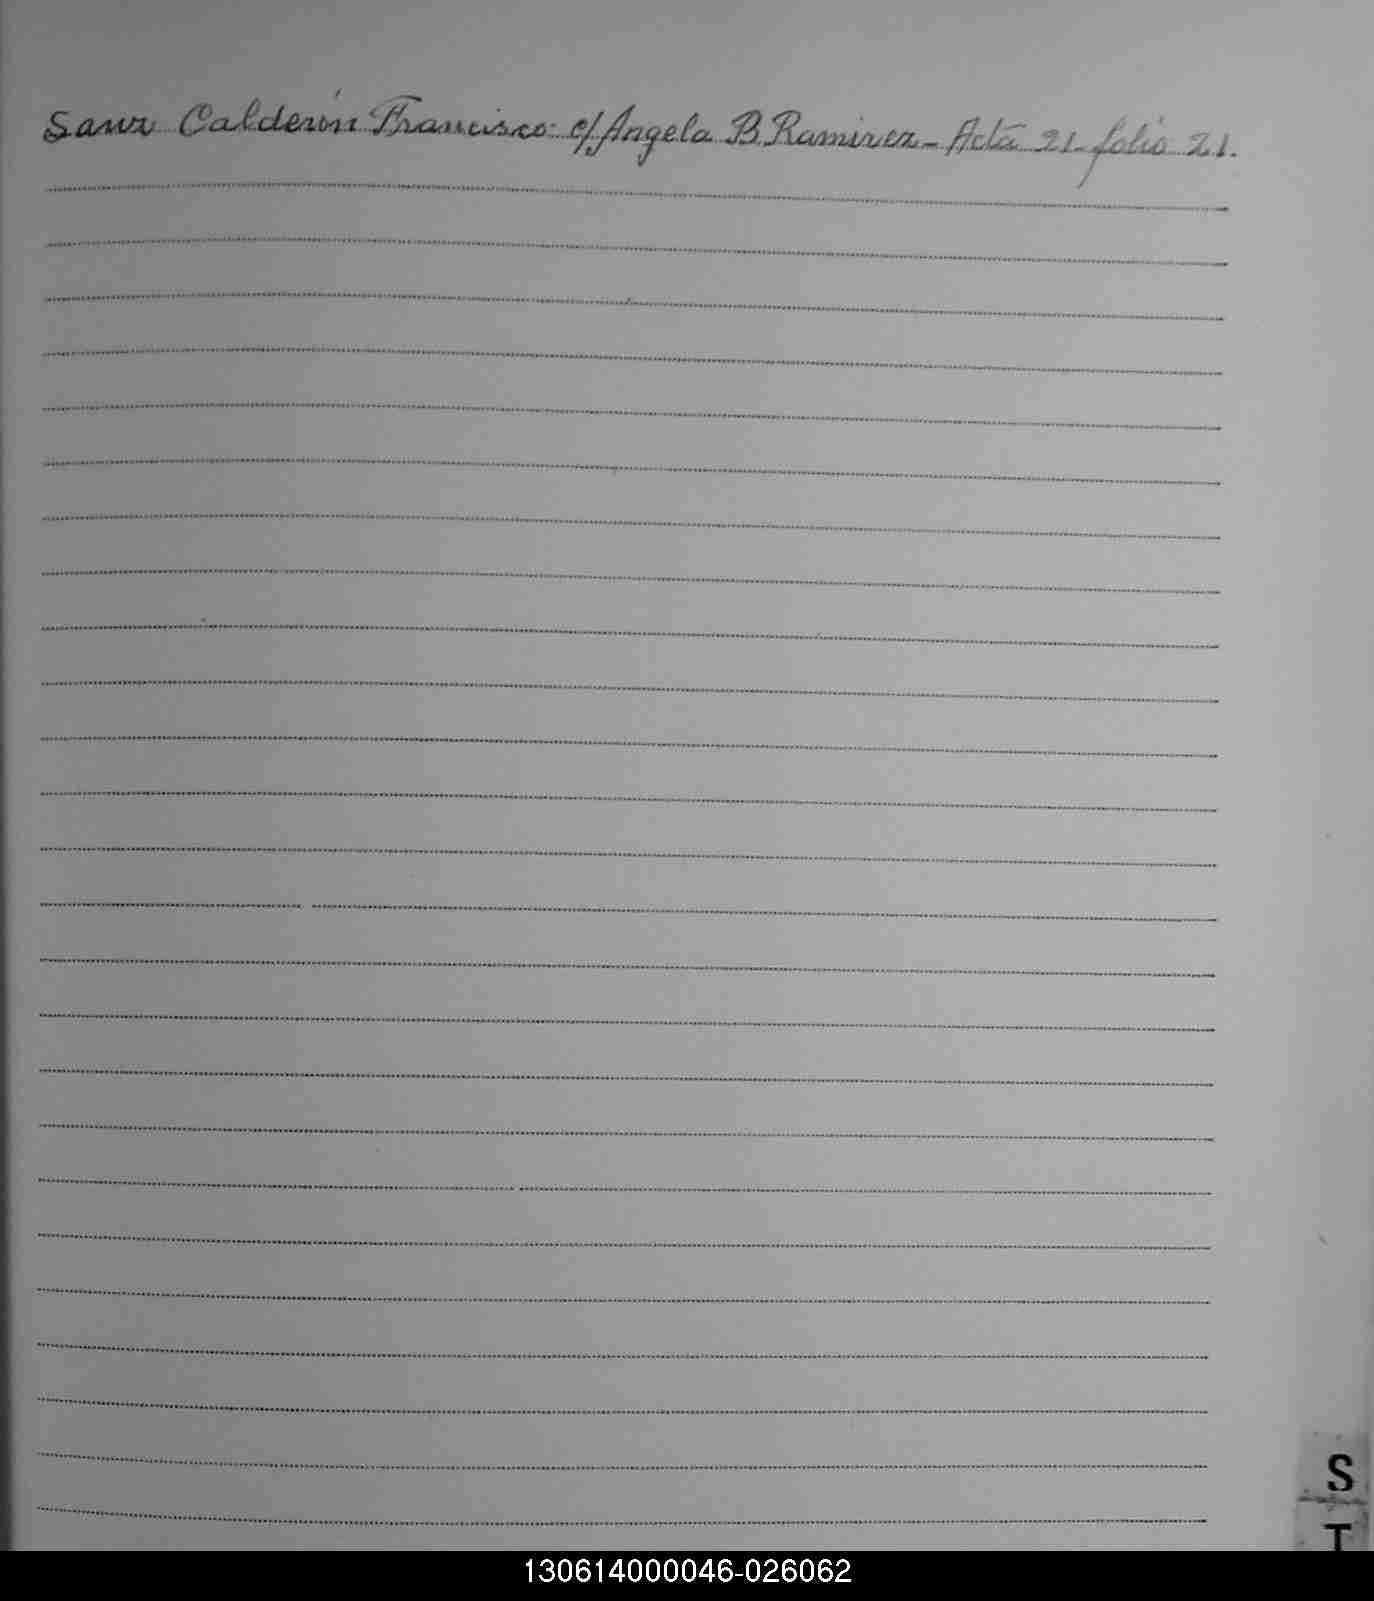 Sanz Calderón Francisco c/ Angela B. Ramirez - Acta 21 - folio 21.
S
T
130614000046-026062